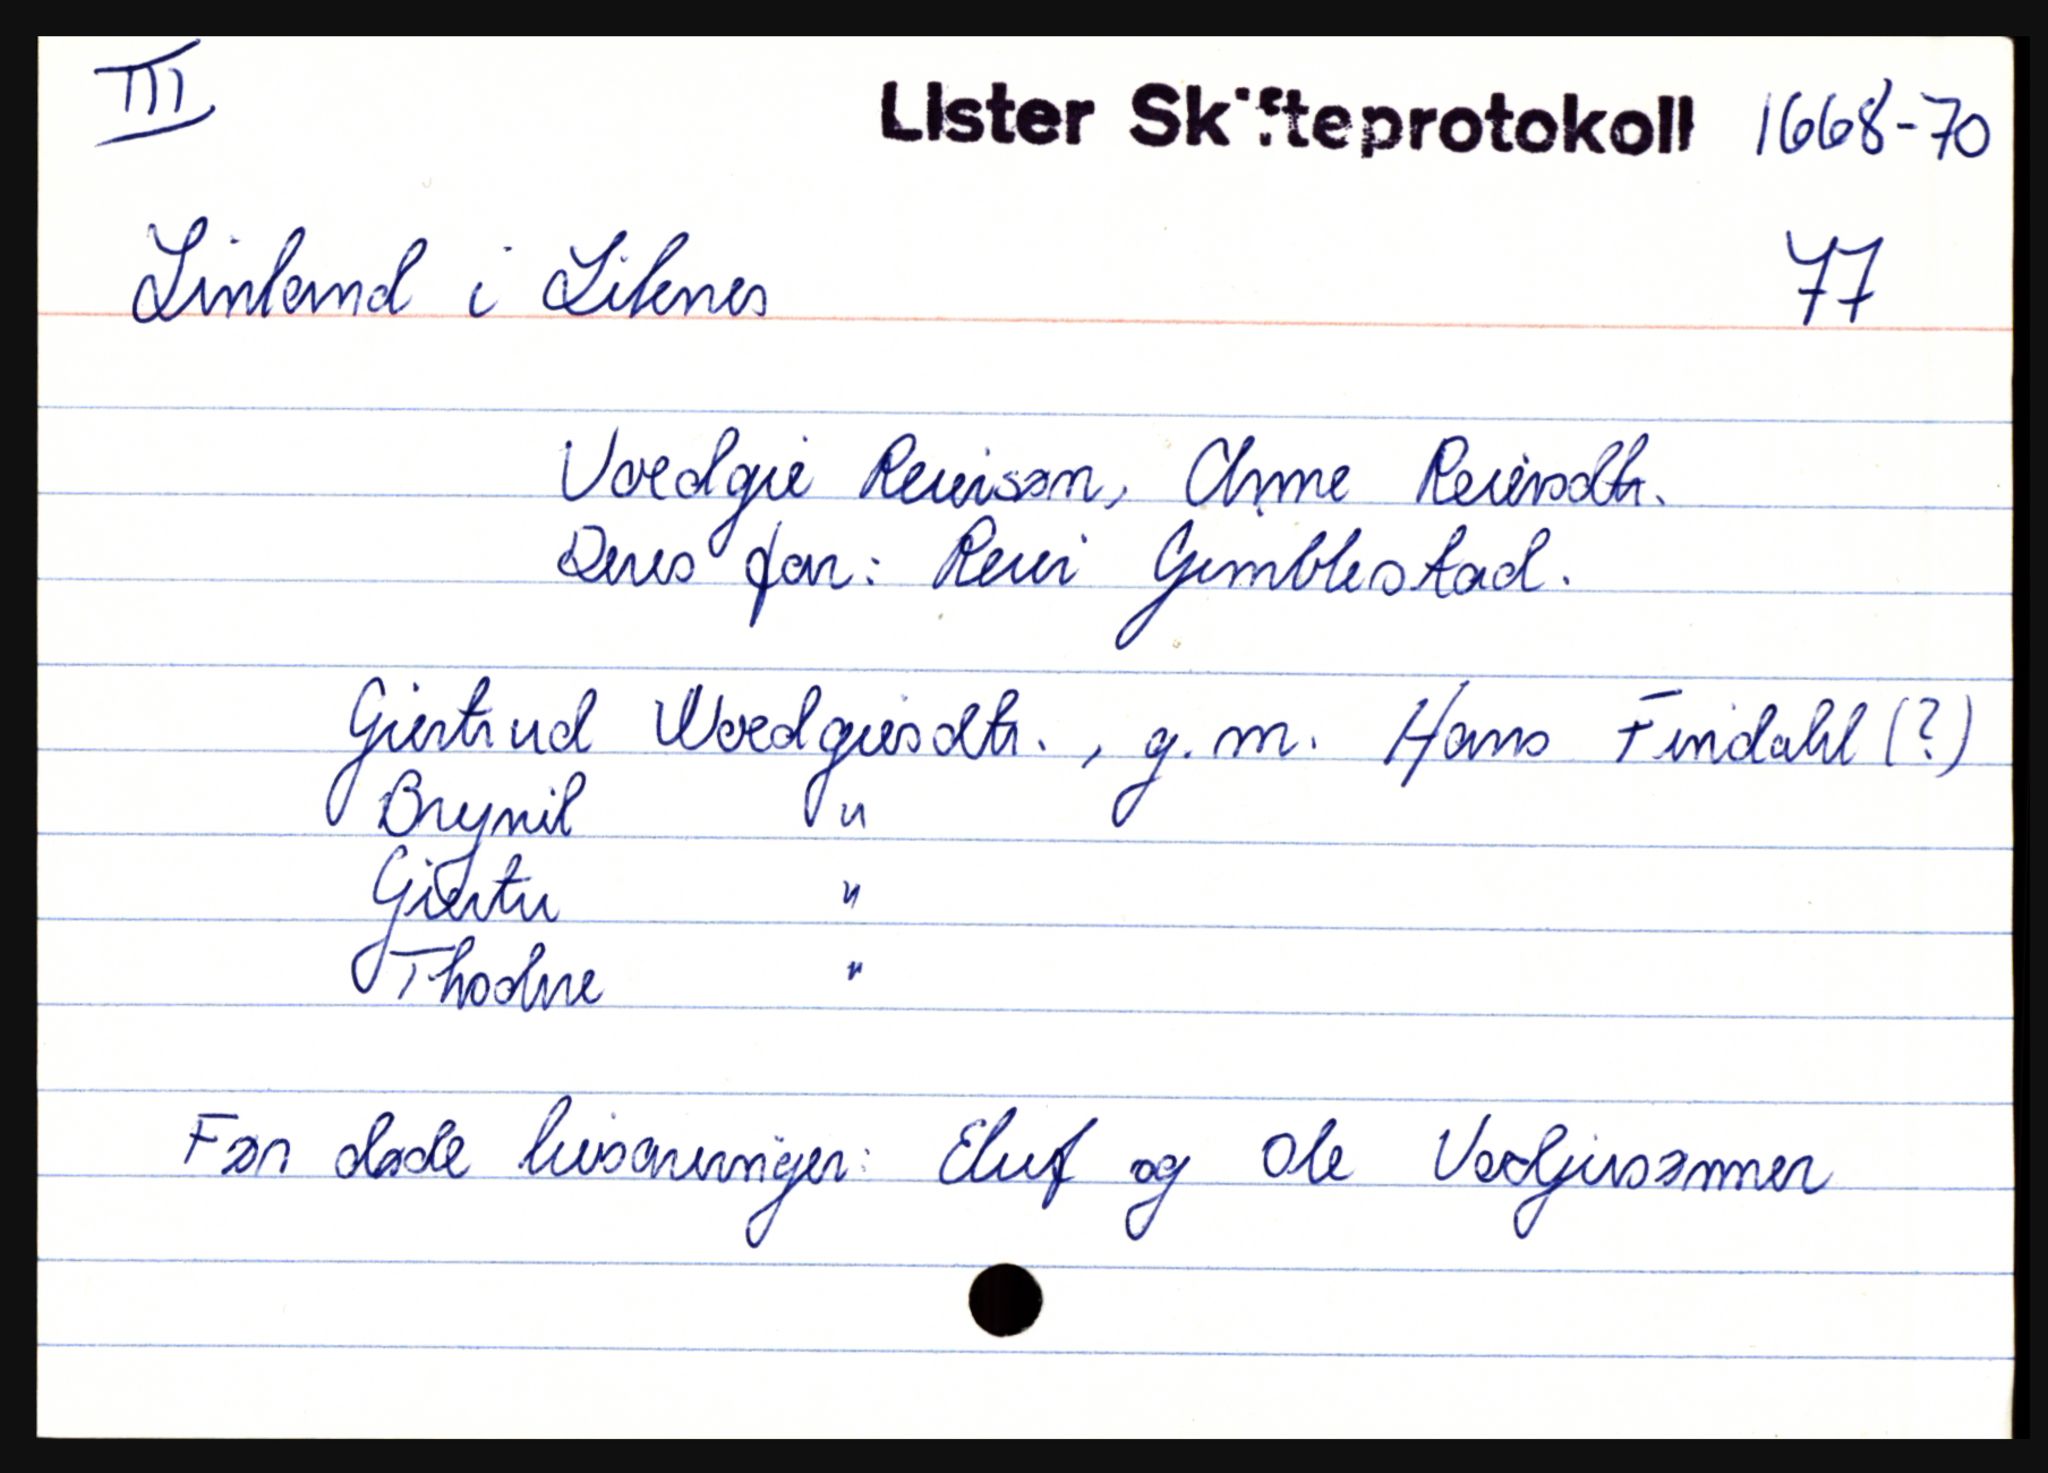 III
Lister Skifteprotokoll 1668-70
Linland i Liknes 77
Vordgie Reierssøn, Anne Reiersdtr.
Deres far: Reier Gimblestad.
Giertrud Wordgiesdtr., g.m. Hans Findahl (?)
Brynil "
Giertru "
Thodne "
Før døde livsarvinger: Eluf og Ole Vordjiesønner